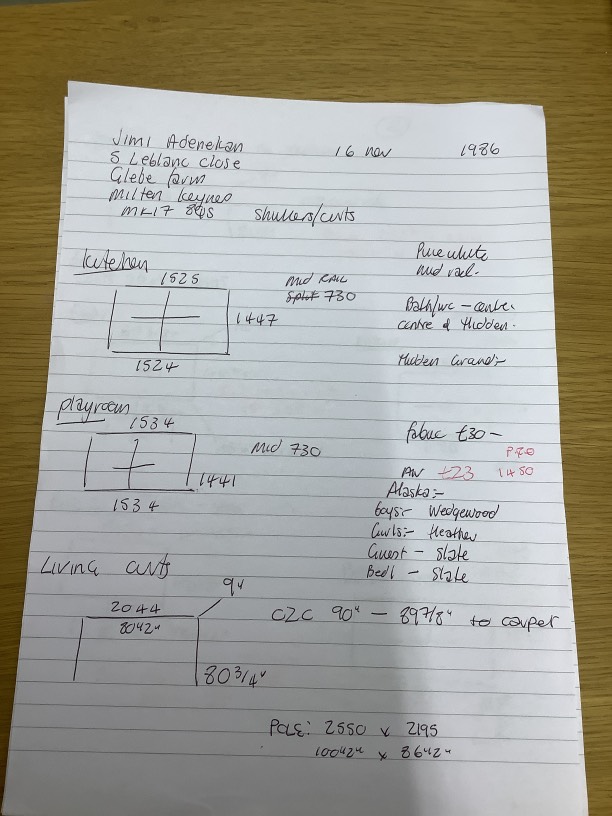 Jimi Adenekan 16 nov 1986
5 Leblanc close
Glebe farm
Milten keynes
MK17 shutters/curts
Pure white
mid rail.
kitchen
1525
MID RAIL
split 730
1447
1524
Bath/wc - centre.
centre & Hidden.
Hidden
playroom
1534
Mid 730
1441
1534
fabric £30 -
£23 1450
Alaska:-
Boys:- Wedgewood
Girls:- Heather
Guest - Slate
Bed1 - Slate
Living curts
9"
2044
80 1/2"
80 3/4"
C2C 90" - 89 7/8" to carpet
POLE: 2550 x 2195
100 1/2" x 86 1/2"